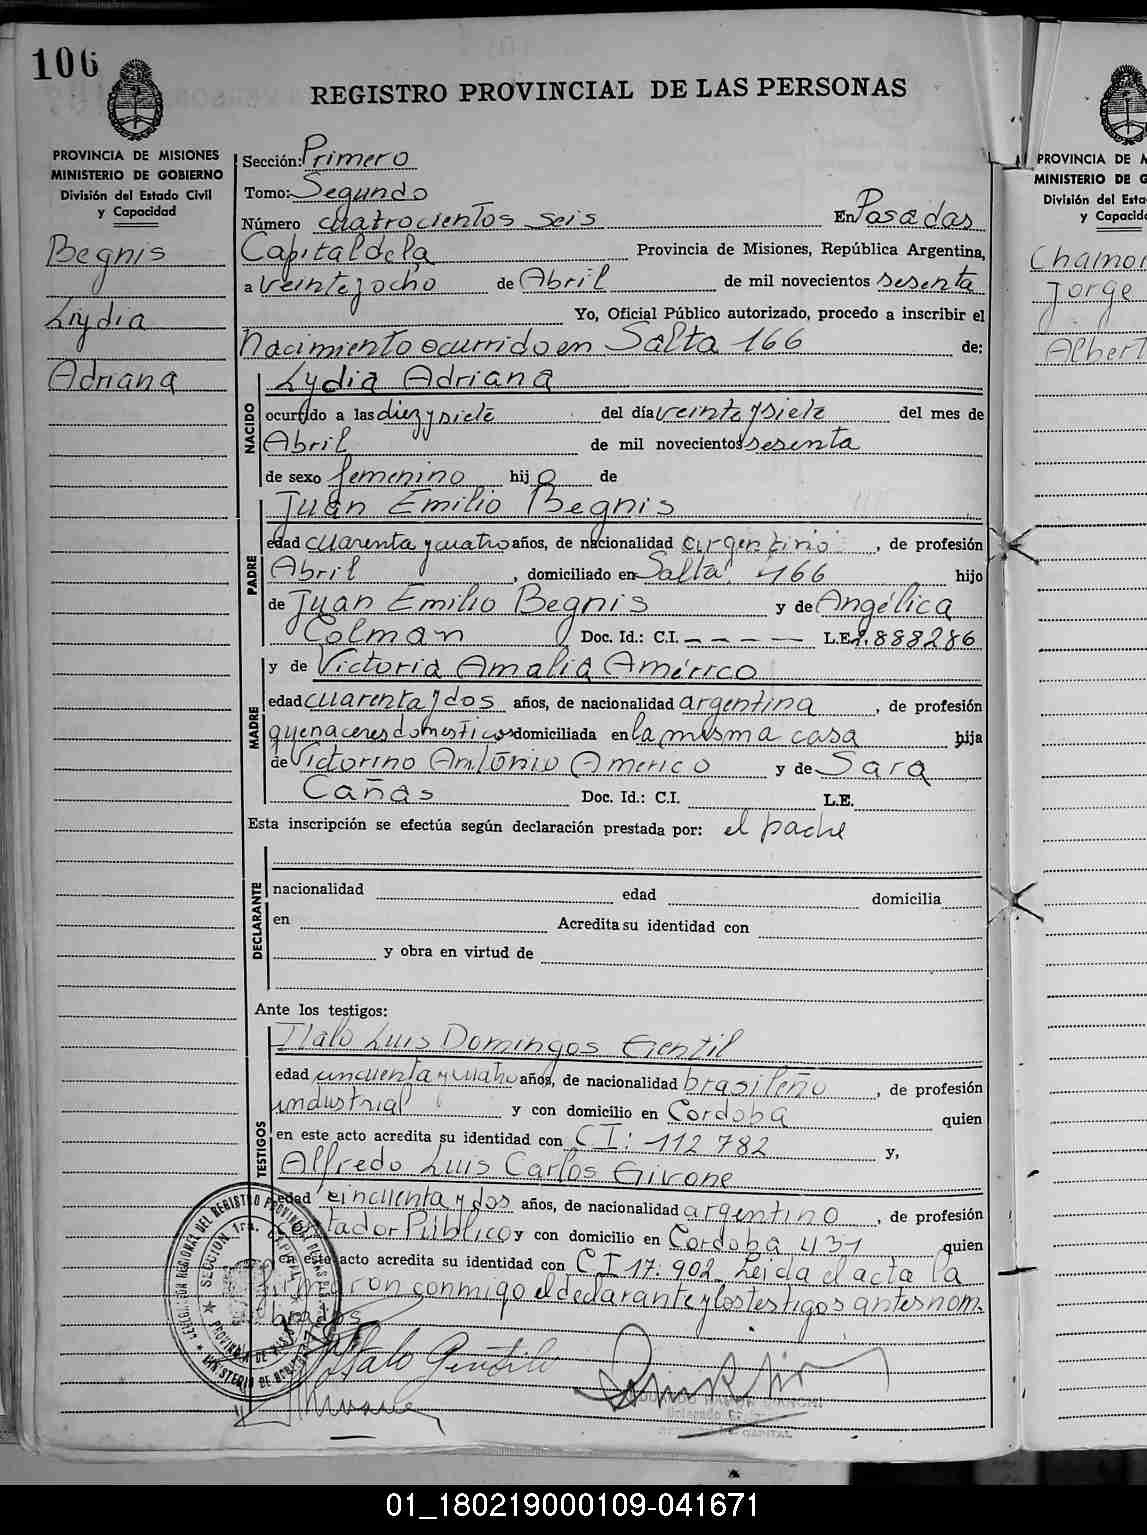 106
REGISTRO PROVINCIAL DE LAS PERSONAS
PROVINCIA DE MISIONES
MINISTERIO DE GOBIERNO
División del Estado Civil
y Capacidad
Begnis
Lydia
Adriana
Sección: Primero
Tomo: Segundo
Número cuatrocientos seis En Posadas
Capital de la Provincia de Misiones, República Argentina,
a veinte y ocho de Abril de mil novecientos sesenta
Yo, Oficial Público autorizado, procedo a inscribir el
Nacimiento ocurrido en Salta 166 de:
NACIDO
Lydia Adriana
ocurrido a las diez y siete del día veinte y siete del mes de
Abril de mil novecientos sesenta
de sexo femenino hija de
PADRE
Juan Emilio Begnis
edad cuarenta y cuatro años, de nacionalidad argentino, de profesión
Abril, domiciliado en Salta 166 hijo
de Juan Emilio Begnis y de Angélica
Colman Doc. Id.: C.I. - - - - L.E. 2.888286
MADRE
y de Victoria Amalia Américo
edad cuarenta y dos años, de nacionalidad argentina, de profesión
quehaceres domesticos domiciliada en la misma casa hija
de Victorino Antonio Americo y de Sara
Cañas Doc. Id.: C.I. L.E.
Esta inscripción se efectúa según declaración prestada por: el padre
DECLARANTE
nacionalidad edad domicilia
en Acredita su identidad con
y obra en virtud de
Ante los testigos:
TESTIGOS
Italo Luis Domingos Gentil
edad cincuenta y cuatro años, de nacionalidad brasileño, de profesión
industrial y con domicilio en Cordoba quien
en este acto acredita su identidad con C I: 112 782 y,
Alfredo Luis Carlos Givone
edad cincuenta y dos años, de nacionalidad argentino, de profesión
Contador Público y con domicilio en Cordoba 431 quien
en este acto acredita su identidad con C I 17.902. Leida el acta la
firmaron conmigo el declarante y los testigos antes nom-
brados
Italo Gentil
CAPITAL
PROVINCIA DE M
MINISTERIO DE G
División del Esta
y Capacida
Chamor
Jorge
Albert
01_180219000109-041671